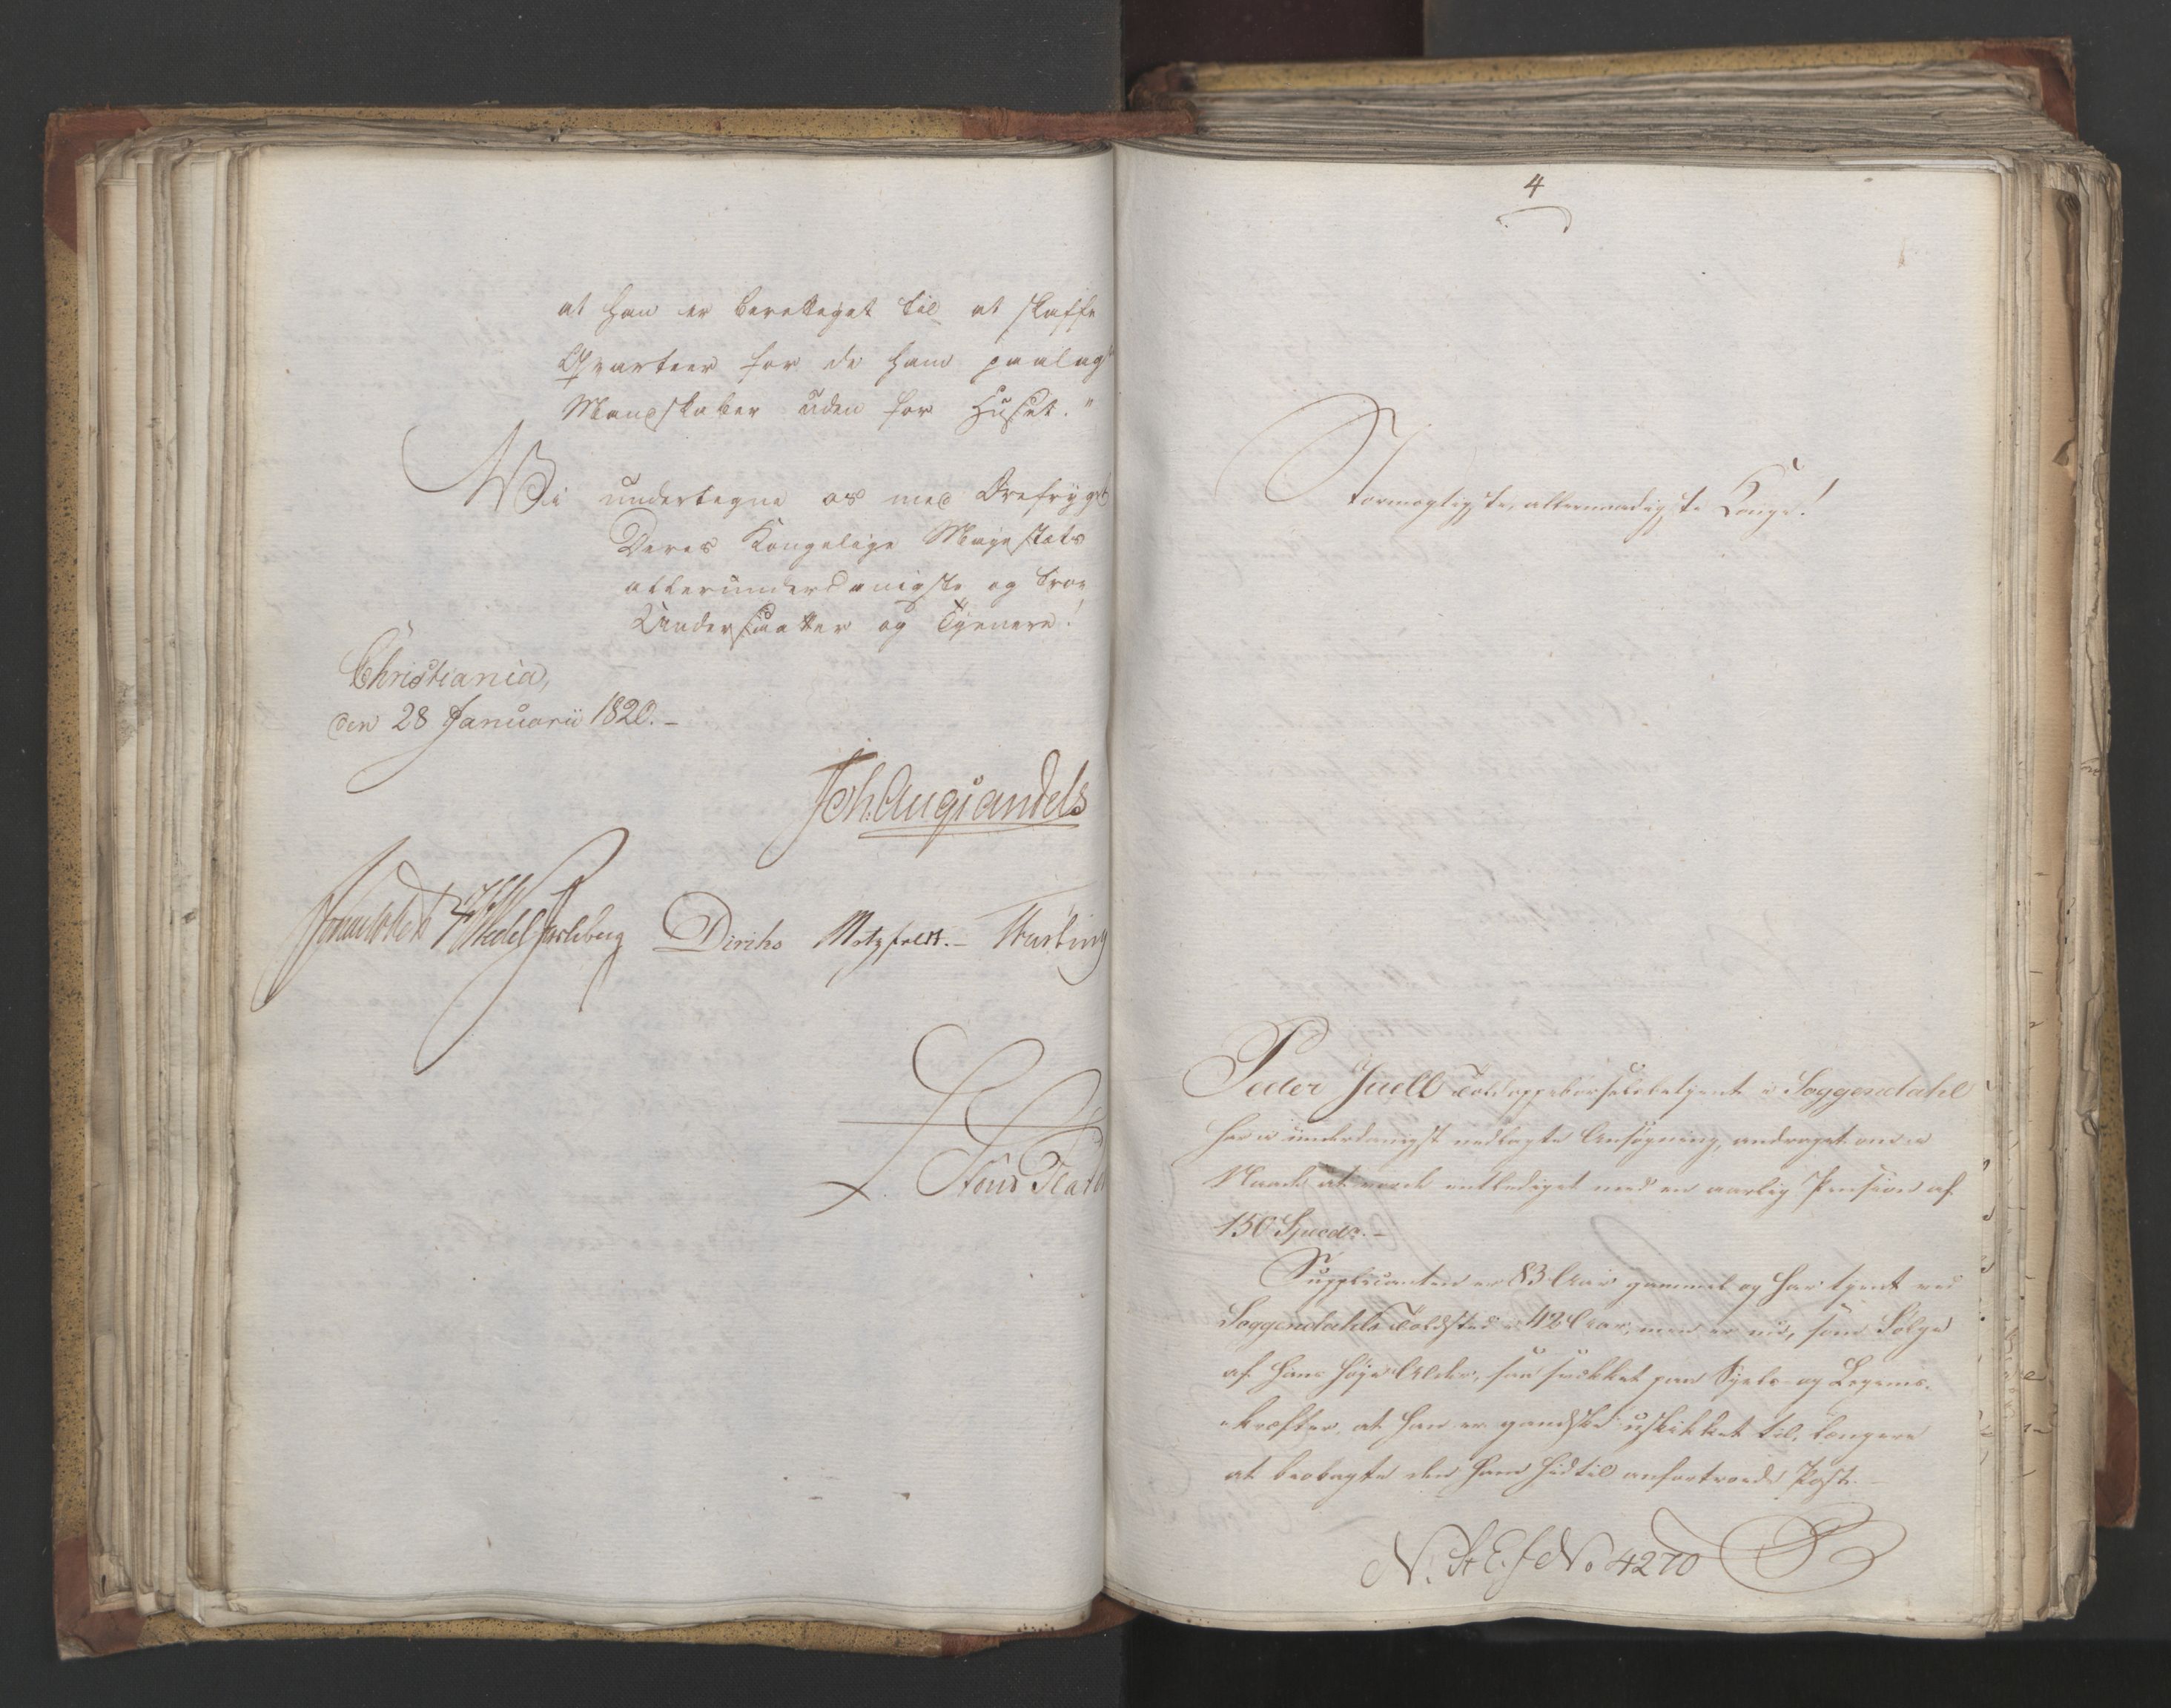 at han er berettiget til at skaffe
Qvarteer for de ham paalag
Mandskaber uden for Huset."
Vi undertegne os med Ærefrygt
Deres Kongelige Majestæts
allerunderdanigste og troe
Undersaatter og Tjenere!
Christiania,
den 28 Januarii 1820.-
Joh. Aug. Sandels
Sommelhielm HWedel Jarlsberg Diriks Motzfeldt.- Fasting
Stoud Plato
4
Stormægtigste, allernaadigste Konge!
Peder Juell Toldoppebørselsbetjent i Soggendahl
har i underdanigst vedlagte Ansøgning, andraget om i
Naade at vorde entlediget med en aarlig Pension af
150 Specd.-
Supplicanten er 83 Aar gammel og har tjent ved
Soggendahls Toldsted i 42 Aar, men er nu, som Følge
af hans høje Alder, saa svækket paa Sjels og Legems-
kræfter, at han er gandske uskikket til, længere
at beobagte den ham hidtil anfortroede Post.-
N. St. E. J No 4270